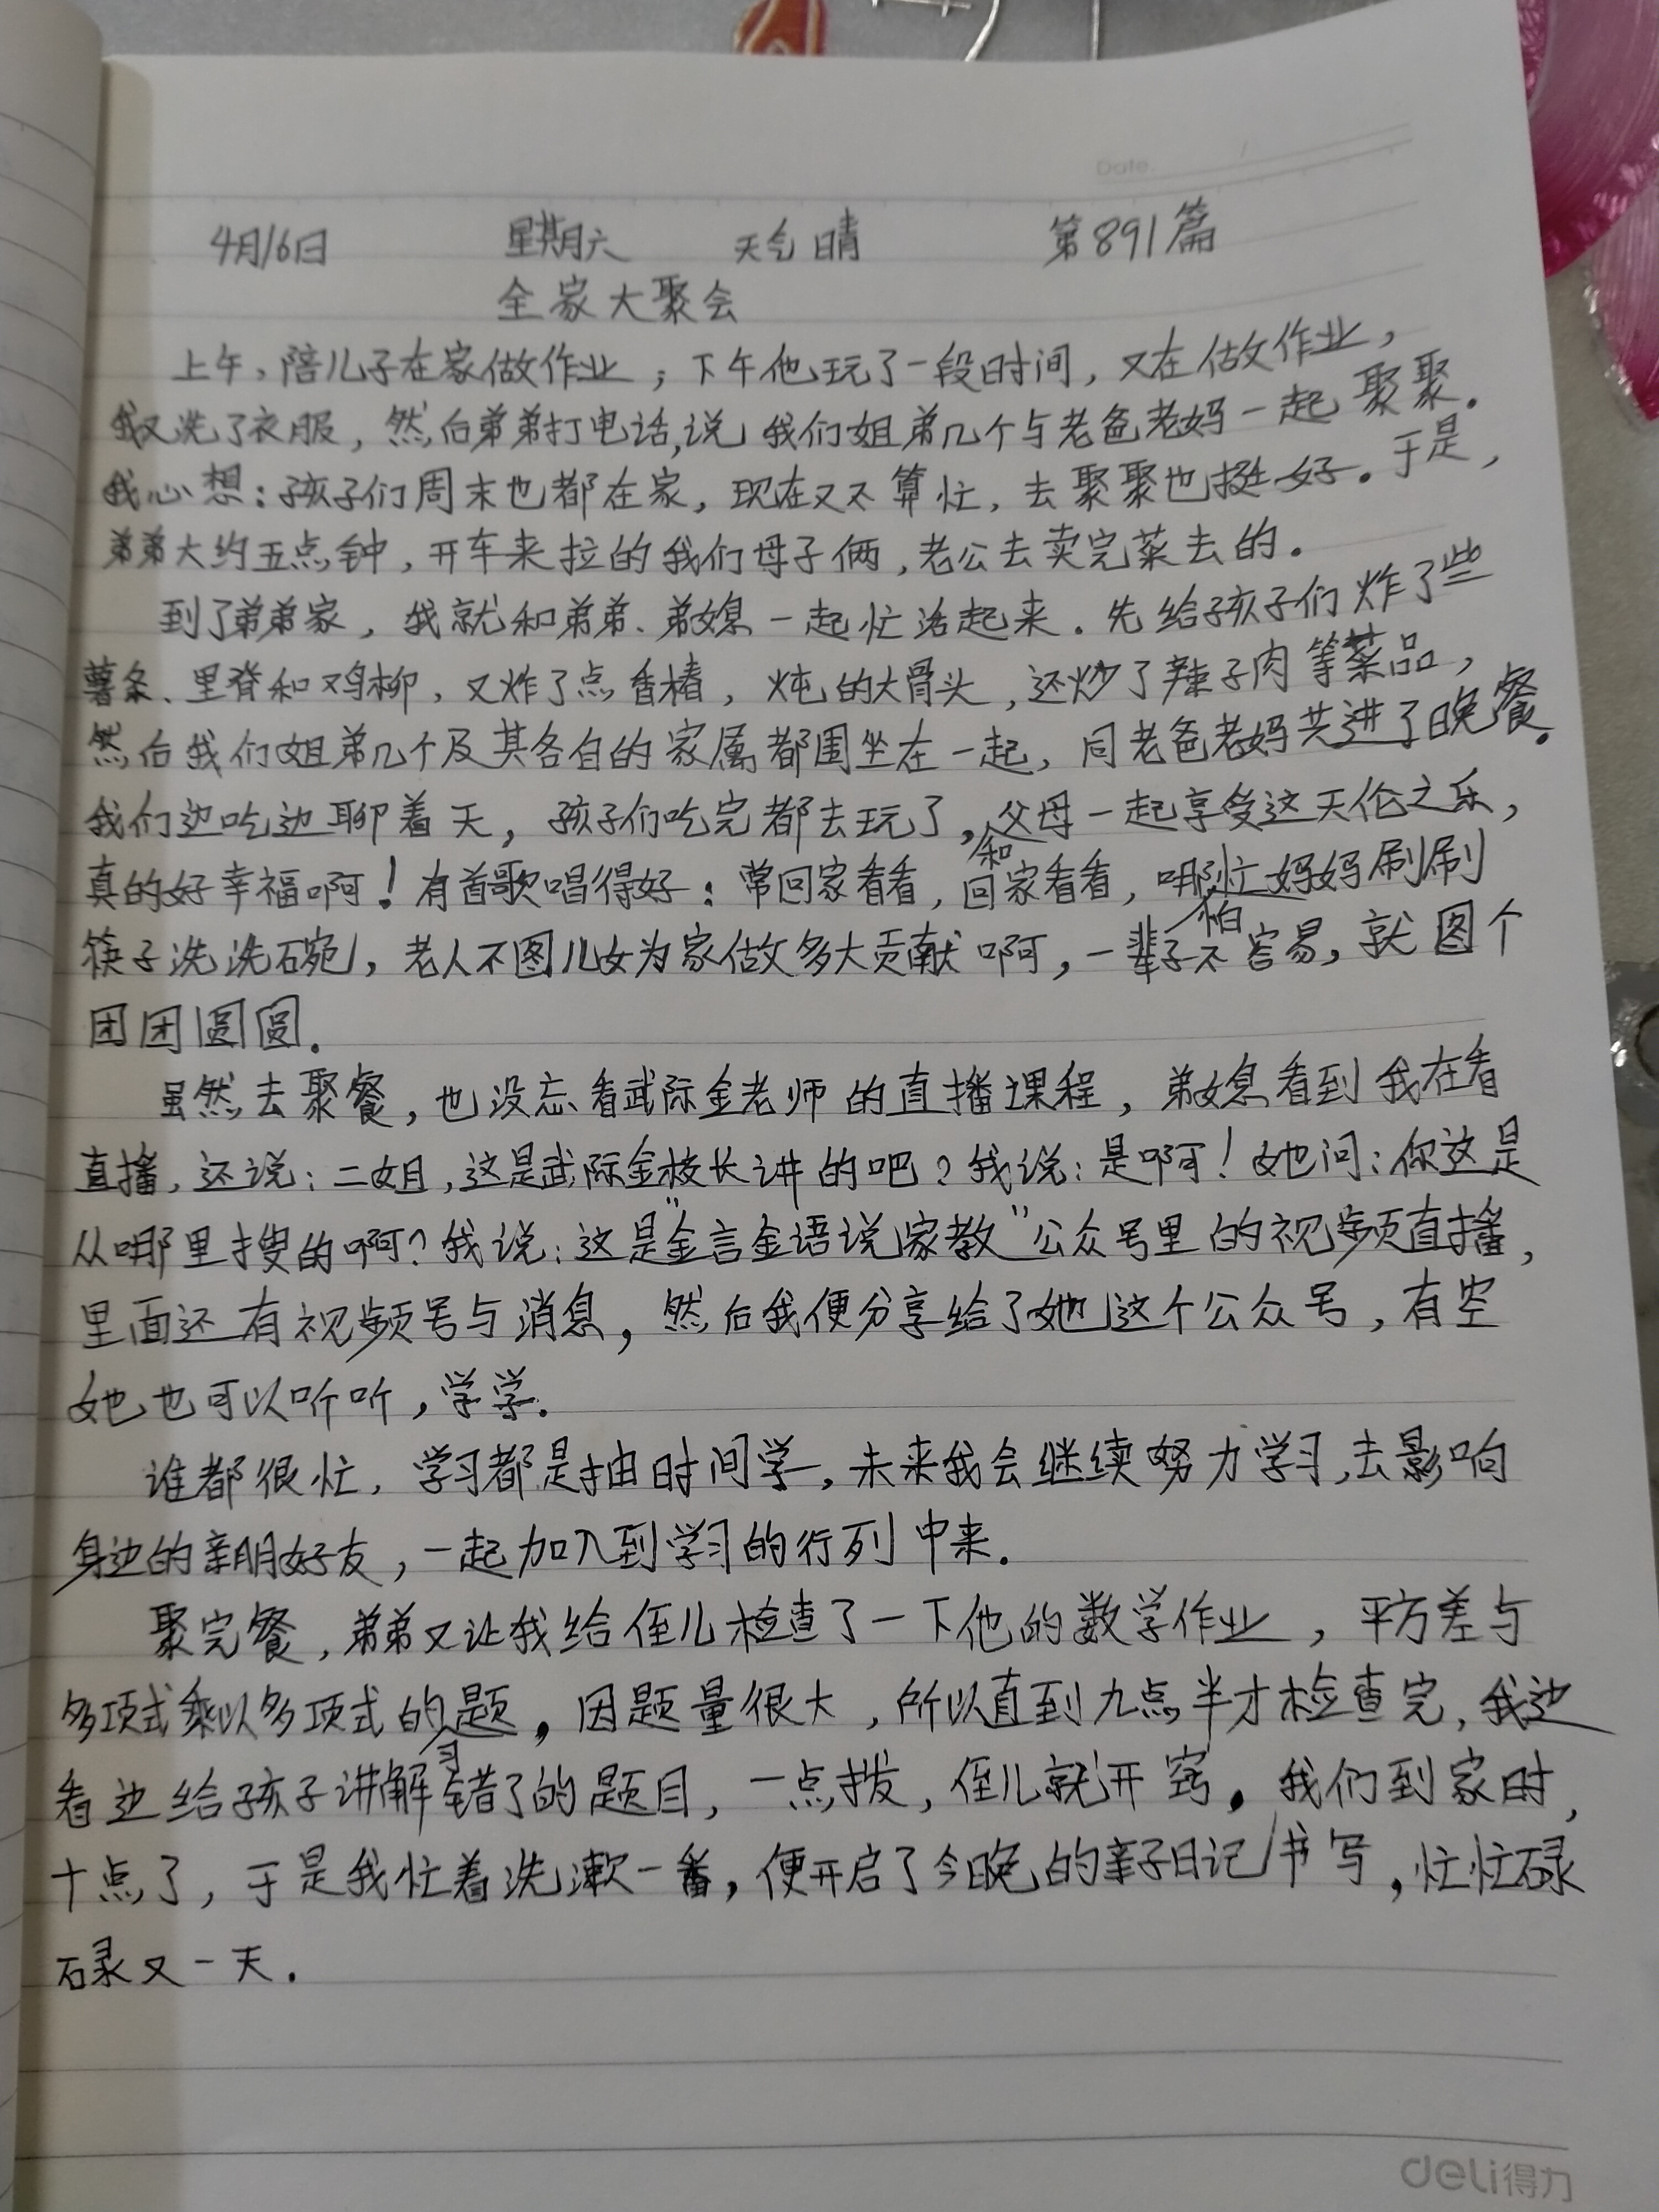 Date.
4月16日 星期六 天气晴 第891篇
全家大聚会
上午，陪儿子在家做作业；下午他玩了一段时间，又在做作业，
我又洗了衣服，然后弟弟打电话，说我们姐弟几个与老爸老妈一起聚聚.
我心想：孩子们周末也都在家，现在又不算忙，去聚聚也挺好。于是，
弟弟大约五点钟，开车来拉的我们母子俩，老公去卖完菜去的.
到了弟弟家，我就和弟弟、弟媳一起忙活起来.先给孩子们炸了些
薯条、里脊和鸡柳，又炸了点香椿，炖的大骨头，还炒了辣子肉等菜品，
然后我们姐弟几个及其各自的家属都围坐在一起，同老爸老妈共进了晚餐.
我们边吃边聊着天，孩子们吃完都去玩了，和父母一起享受这天伦之乐，
真的好幸福啊！有首歌唱得好：常回家看看，回家看看，哪怕忙妈妈刷刷
筷子洗洗碗，老人不图儿女为家做多大贡献啊，一辈子不容易，就图个
团团圆圆.
虽然去聚餐，也没忘看武际金老师的直播课程，弟媳看到我在看
直播，还说：二姐，这是武际金校长讲的吧？我说：是啊！她问：你这是
从哪里搜的啊？我说：这是“金言金语说家教”公众号里的视频直播，
里面还有视频号与消息，然后我便分享给了她这个公众号，有空
她也可以听听，学学.
谁都很忙，学习都是抽时间学，未来我会继续努力学习，去影响
身边的亲朋好友，一起加入到学习的行列中来.
聚完餐，弟弟又让我给侄儿检查了一下他的数学作业，平方差与
多项式乘以多项式的习题，因题量很大，所以直到九点半才检查完，我边
看边给孩子讲解错了的题目，一点拨，侄儿就开窍。我们到家时，
十点了，于是我忙着洗漱一番，便开启了今晚的亲子日记书写，忙忙碌
碌又一天.
deli得力